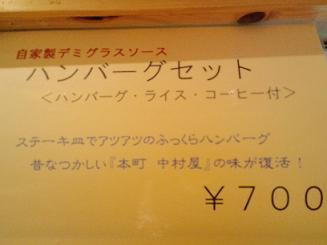 自家製デミグラスソース
ハンバーグセット
＜ハンバーグ・ライス・コーヒー付＞
ステーキ皿でアツアツのふっくらハンバーグ
昔なつかしい『本町 中村屋』の味が復活！
￥７００